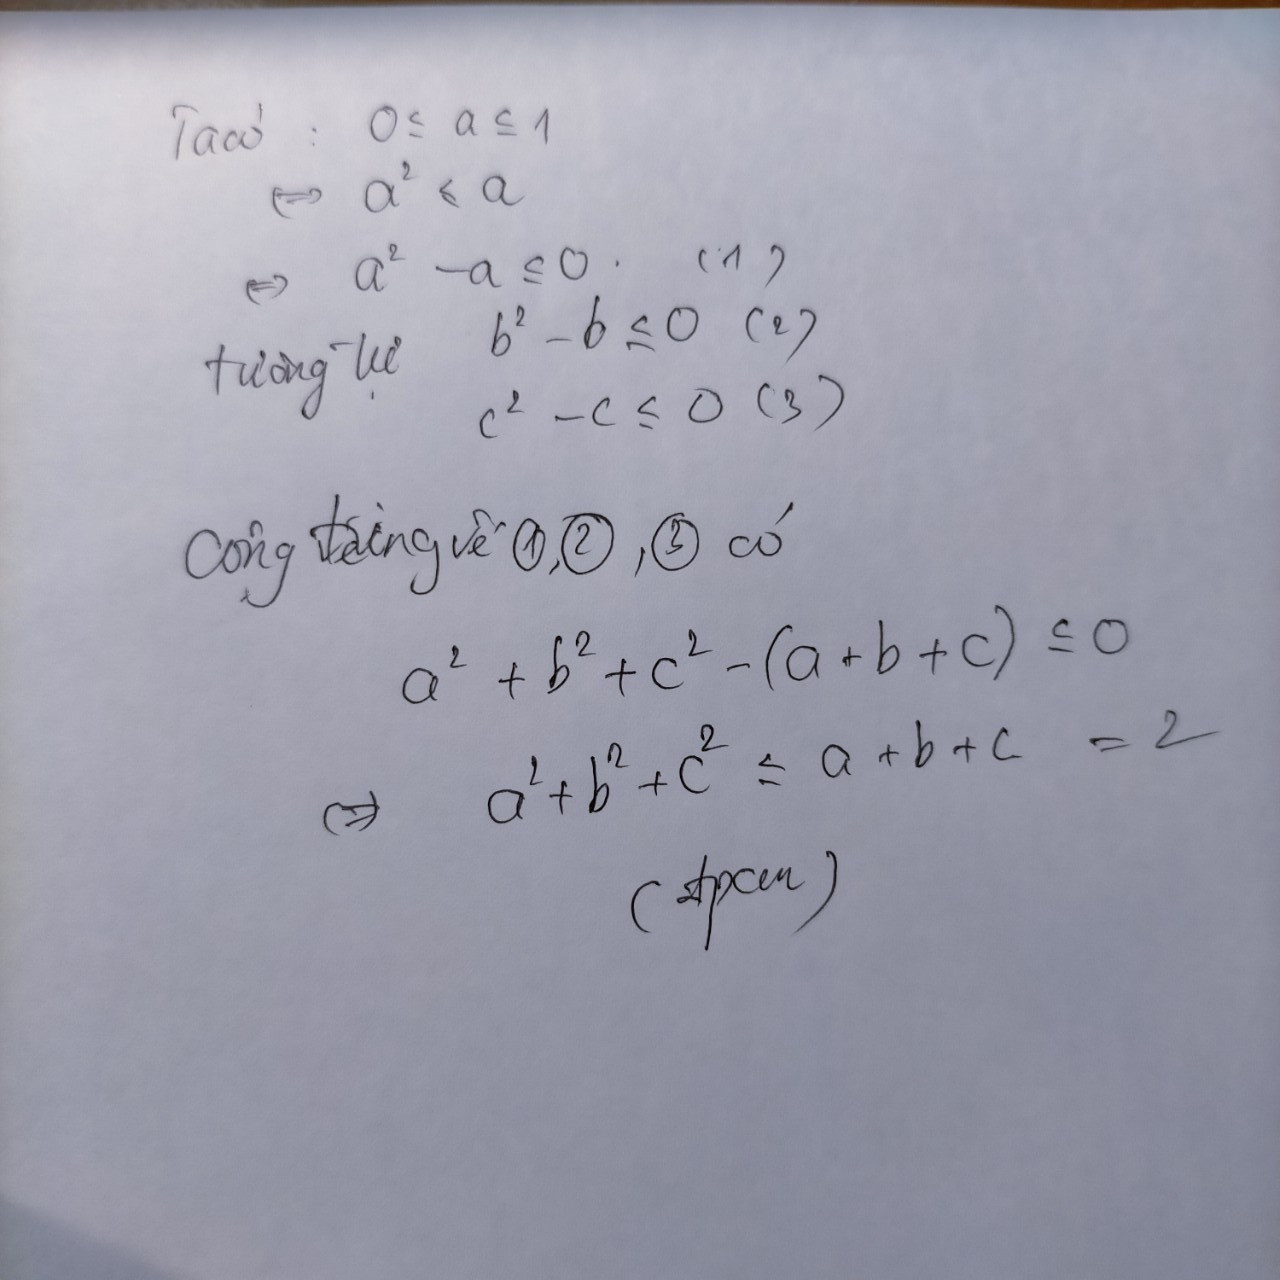 Ta có : 0 ≤ a ≤ 1
⇔ a² ≤ a
⇔ a² - a ≤ 0. (1)
tương tự b² - b ≤ 0 (2)
c² - c ≤ 0 (3)
Cộng từng vế ①, ②, ③ có
a² + b² + c² - (a + b + c) ≤ 0
⇔ a² + b² + c² ≤ a + b + c = 2
(đpcm)